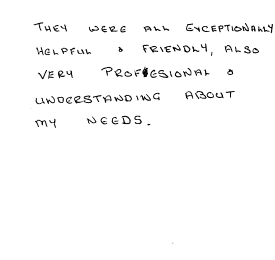 THEY WERE ALL EXCEPTIONALLY
HELPFUL & FRIENDLY, ALSO
VERY PROFESIONAL &
UNDERSTANDING ABOUT
MY NEEDS.